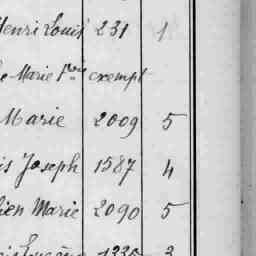 Henri Louis 231 1
Marie Fois exempt
Marie 2009 5
Joseph 1587 4
Marie 2090 5
1335 3